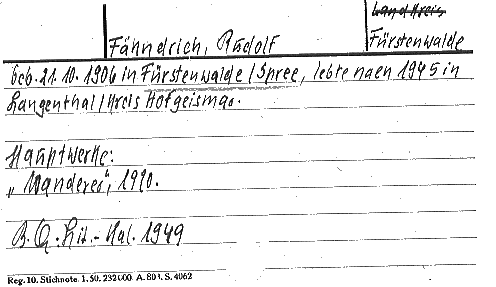 Landkreis
Fähndrich, Rudolf
Fürstenwalde
geb. 21.10.1904 in Fürstenwalde/Spree, lebte nach 1945 in
Langenthal/Kreis Hofgeismar.
Hauptwerke:
„Wanderer", 1940.
B. Q.: Lit.-Kal. 1949
Reg. 10. Stichnote. 1. 50. 232000. A. 803. S. 4062